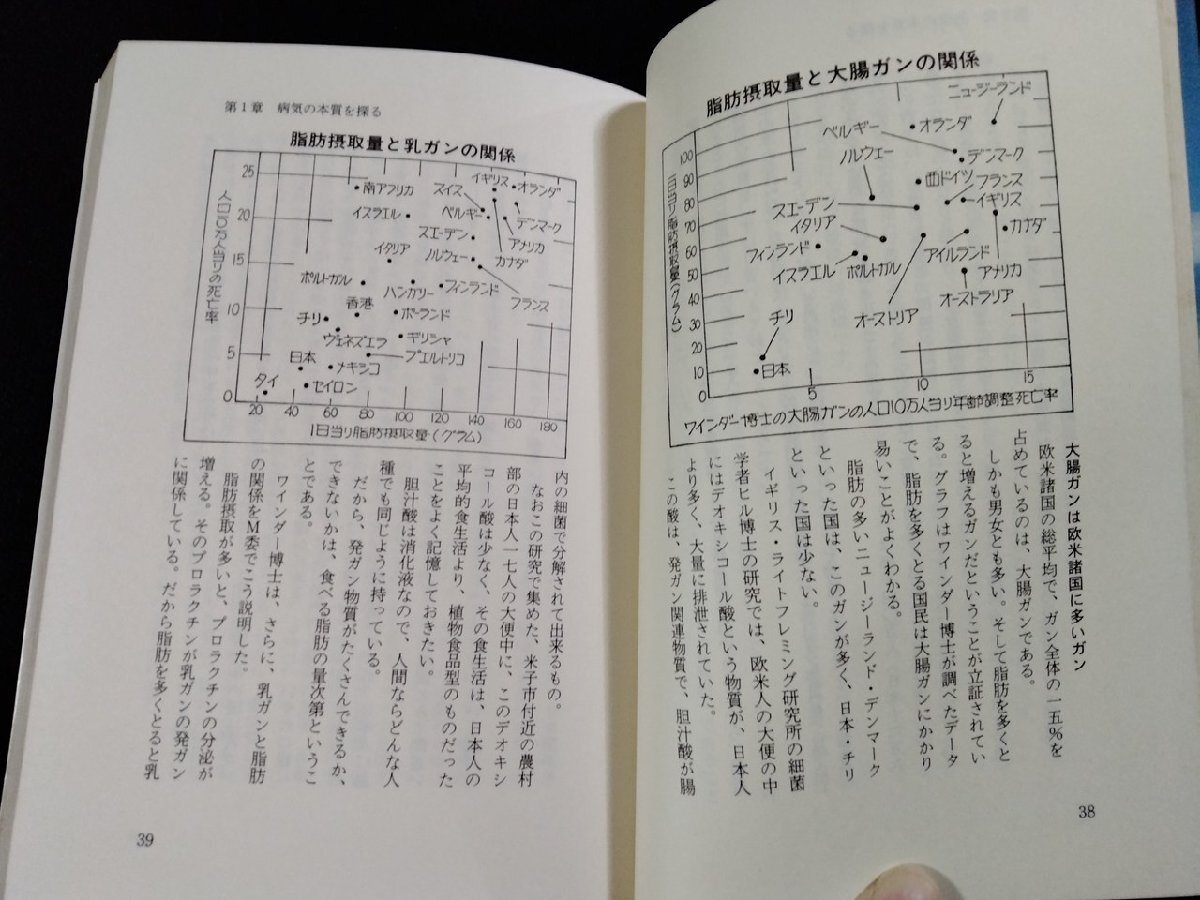 脂肪摂取量と大腸ガンの関係
ニュージーランド
ベルギー
オランダ
ノルウェー
デンマーク
西ドイツ
フランス
スエーデン
イギリス
イタリア
カナダ
フィンランド
アイルランド
イスラエル
ポルトガル
アメリカ
オーストラリア
オーストリア
チリ
日本
一日当り脂肪摂取量(グラム)
100
90
80
70
60
50
40
30
20
10
0
5
10
15
ワインダー博士の大腸ガンの人口10万人当り年齢調整死亡率
大腸ガンは欧米諸国に多いガン
欧米諸国の総平均で、ガン全体の一五%を
占めているのは、大腸ガンである。
しかも男女とも多い。そして脂肪を多くと
ると増えるガンだということが立証されてい
る。グラフはワインダー博士が調べたデータ
で、脂肪を多くとる国民は大腸ガンにかかり
易いことがよくわかる。
脂肪の多いニュージーランド・デンマーク
といった国は、このガンが多く、日本・チリ
といった国は少ない。
イギリス・ライトフレミング研究所の細菌
学者ヒル博士の研究では、欧米人の大便の中
にはデオキシコール酸という物質が、日本人
より多く、大量に排泄されていた。
この酸は、発ガン関連物質で、胆汁酸が腸
38
第1章 病気の本質を探る
脂肪摂取量と乳ガンの関係
イギリス
南アフリカ
スイス
オランダ
イスラエル
ベルギー
デンマーク
スエーデン
アメリカ
イタリア
ノルウェー
カナダ
ポルトガル
ハンガリー
フィンランド
フランス
香港
チリ
ポーランド
ヴェネズエラ
ギリシャ
日本
プエルトリコ
メキシコ
タイ
セイロン
人口10万人当りの死亡率
25
20
15
10
5
0
20
40
60
80
100
120
140
160
180
1日当り脂肪摂取量(グラム)
内の細菌で分解されて出来るもの。
なおこの研究で集めた、米子市付近の農村
部の日本人一七人の大便中に、このデオキシ
コール酸は少なく、その食生活は、日本人の
平均的食生活より、植物食品型のものだった
ことをよく記憶しておきたい。
胆汁酸は消化液なので、人間ならどんな人
種でも同じように持っている。
だから、発ガン物質がたくさんできるか、
できないかは、食べる脂肪の量次第というこ
とである。
ワインダー博士は、さらに、乳ガンと脂肪
の関係をM委でこう説明した。
脂肪摂取が多いと、プロラクチンの分泌が
増える。そのプロラクチンが乳ガンの発ガン
に関係している。だから脂肪を多くとると乳
39